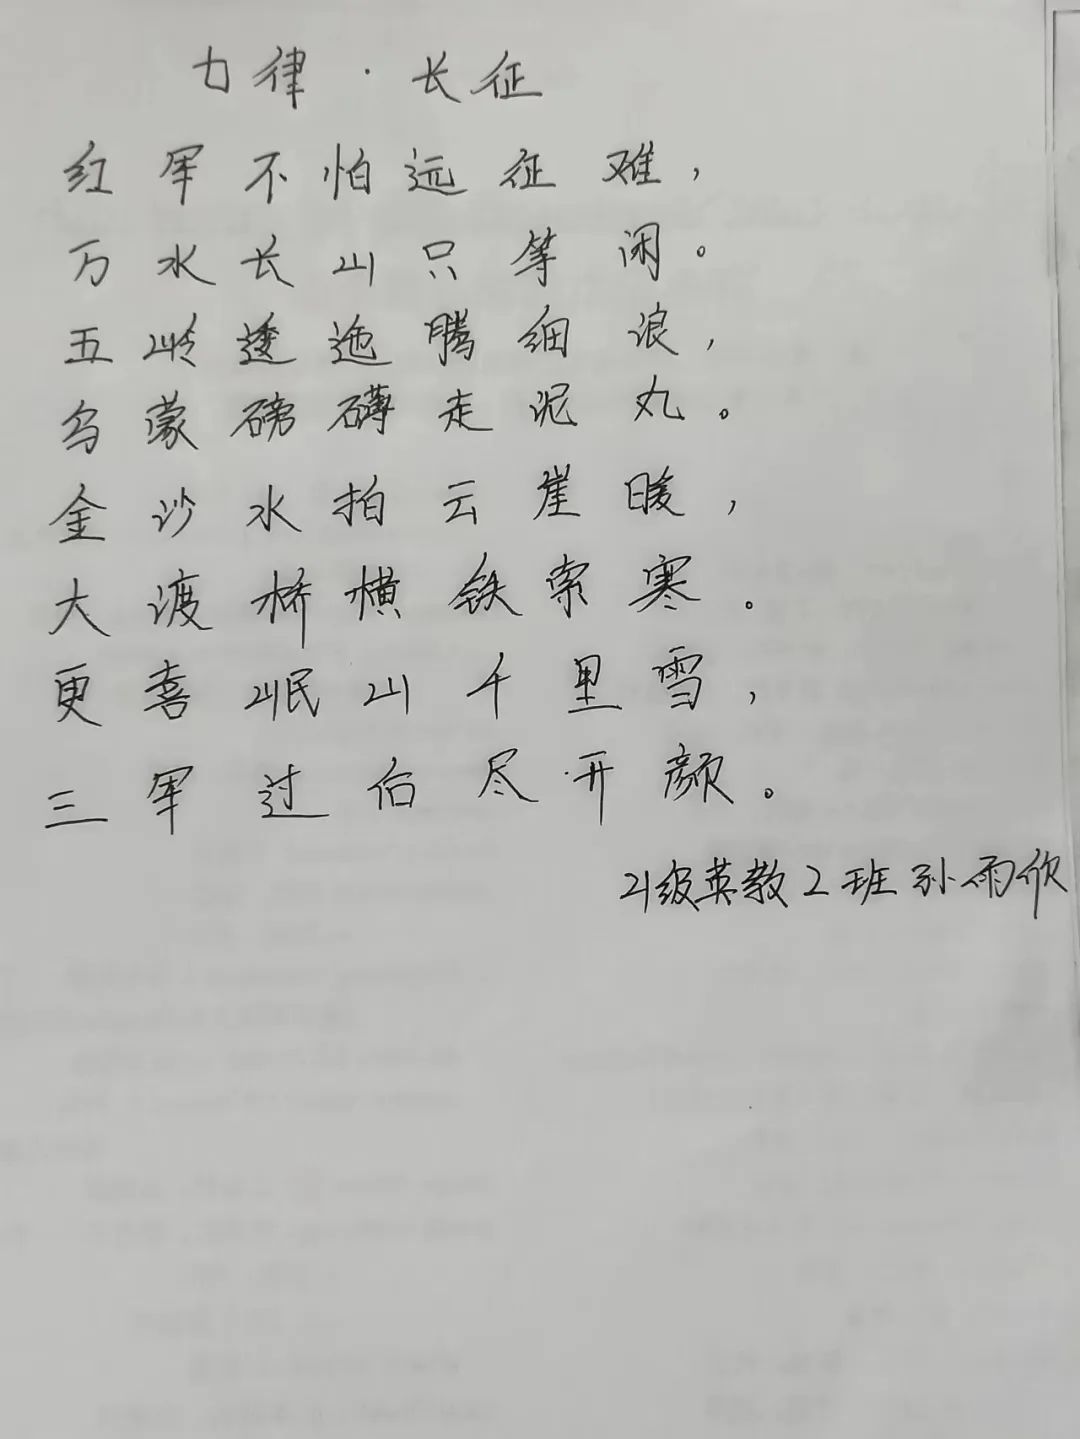 七律·长征
红军不怕远征难，
万水长山只等闲。
五岭逶迤腾细浪，
乌蒙磅礴走泥丸。
金沙水拍云崖暖，
大渡桥横铁索寒。
更喜岷山千里雪，
三军过后尽开颜。
21级英教2班孙雨欣